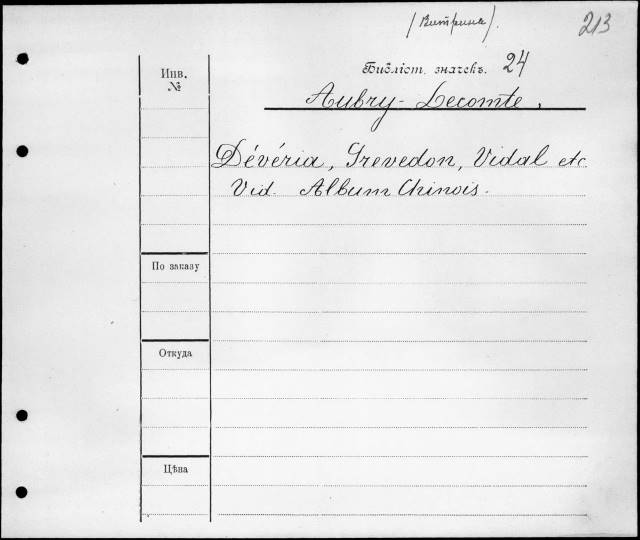 (Витрина).
213
Библіот. значекъ. 24
Инв.
№
Aubry-Lecomte.
Dévéria, Grevedon, Vidal etc
Vid. Album Chinois.
По заказу
Откуда
Цѣна